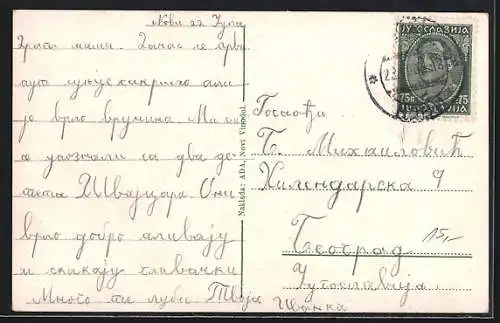 Нови 22 Јула
Драга мама. Данас је први
пут сунце сакривено али
је врло вручина. Ми смо
се упознали са два де-
тета Швајцара. Они
врло добро пливају
и скакају главачки
Много те љуби Твоја Иванка
Naklada: ADA, Novi Vinodol.
ЈУГОСЛАВИЈА
75п 75
Госпођи
Б. Михаиловић
Хилендарска 9
Београд
Југославија
15,-